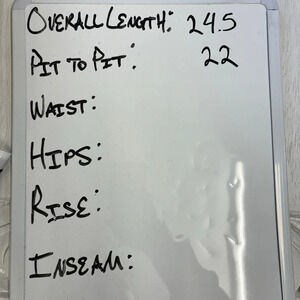 OVERALL LENGTH: 24.5
PIT TO PIT: 22
WAIST:
HIPS:
RISE:
INSEAM: